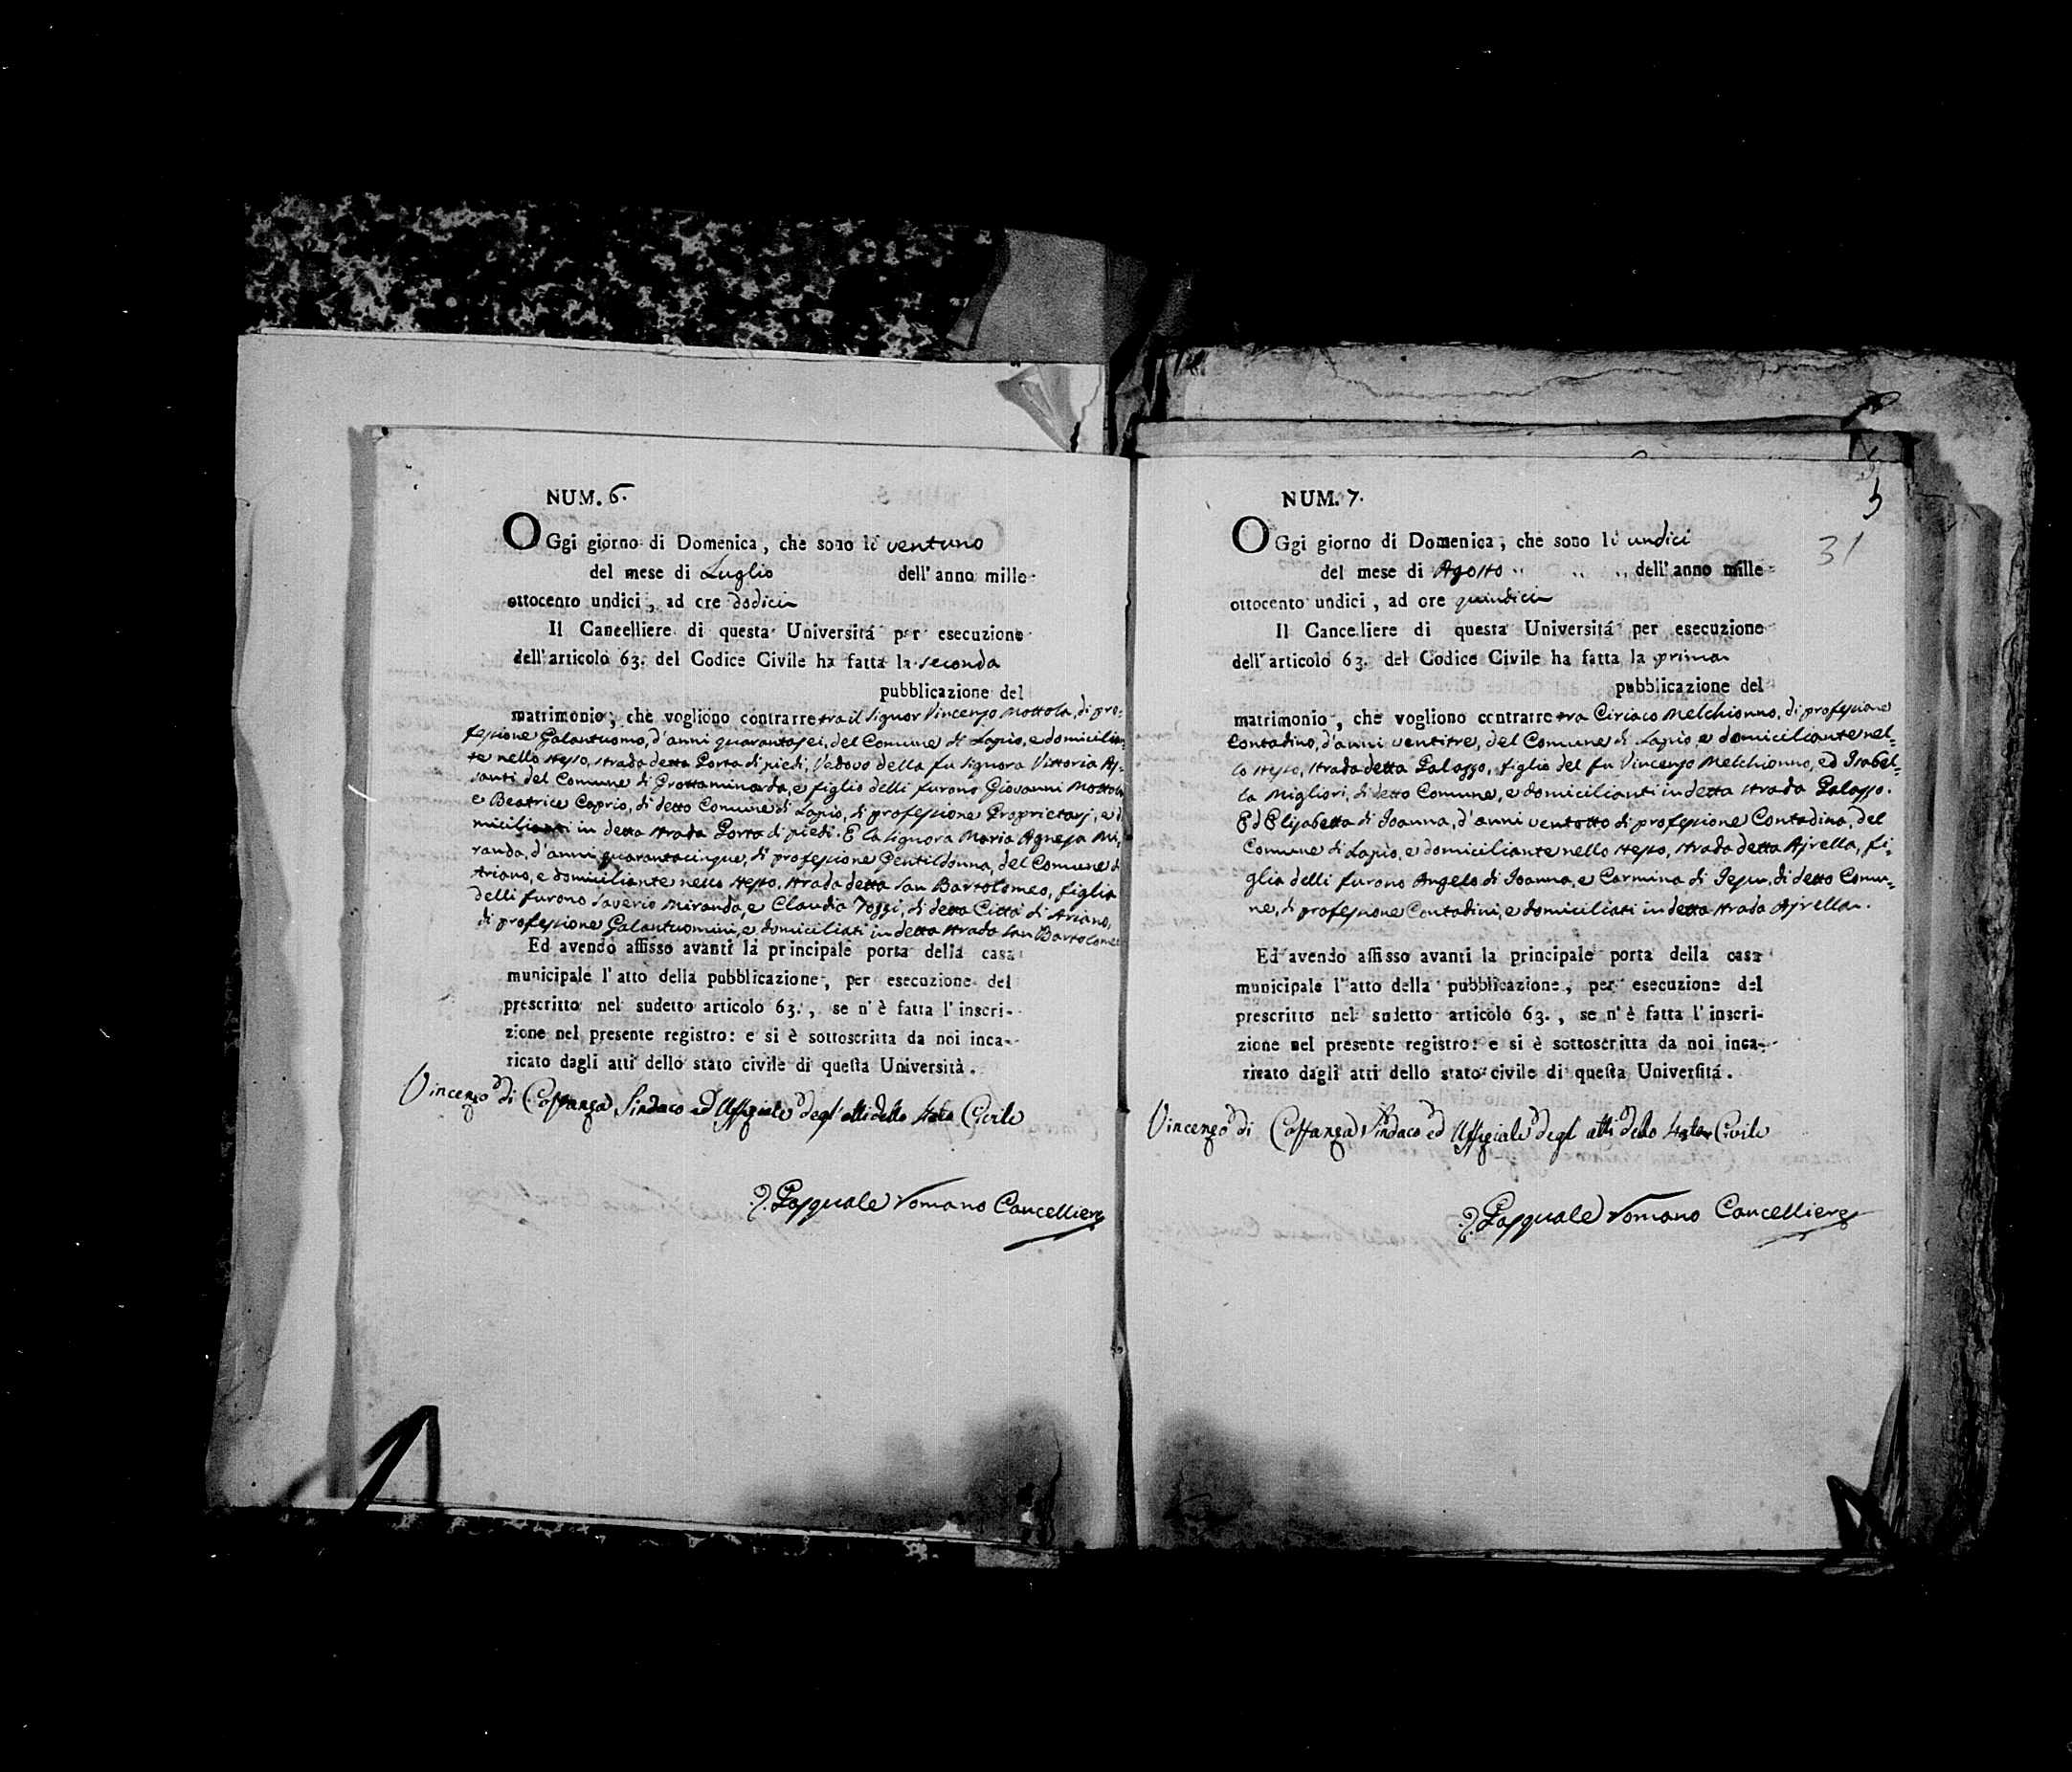 NUM. 6.
OGgi giorno di Domenica, che sono li ventuno
del mese di Luglio dell'anno mille-
ottocento undici, ad ore dodici
Il Cancelliere di questa Universitá per esecuzione
dell'articolo 63. del Codice Civile ha fatta la seconda
pubblicazione del
matrimonio, che vogliono contrarre tra il Signor Vincenzo Mottola, di pro-
fessione Galantuomo, d'anni quarantasei, del Comune di Lapio, e domicilian-
te nello stesso, strada detta Porta di piedi, Vedovo della fu Signora Vittoria Aj-
santi del Comune di Grottaminarda, e figlio delli furono Giovanni Mottola
e Beatrice Caprio, di detto Comune di Lapio, di professione Proprietarj, e d
micilianti in detta strada Porta di piedi. E la Signora Maria Agnesa Mi-
randa, d'anni quarantacinque, di professione Gentildonna, del Comune d
Ariano, e domiciliante nello stesso, strada detta San Bartolomeo, figlia
delli furono Saverio Miranda, e Claudia Zoffi, di detta Città di Ariano,
di professione Galantuomini, e domiciliati in detta strada San Bartolomeo
Ed avendo affisso avanti la principale porta della casa
municipale l'atto della pubblicazione, per esecuzione del
prescritto nel sudetto articolo 63., se n'è fatta l'inscri-
zione nel presente registro: e si è sottoscritta da noi inca-
ricato dagli atti dello stato civile di questa Università.
Vincenzo di Costanza Sindaco ed Uffiziale degl'atti dello Stato Civile
D. Pasquale Romano Cancelliere
NUM. 7.
31
OGgi giorno di Domenica, che sono li undici
del mese di Agosto dell'anno mille-
ottocento undici, ad ore quindici
Il Cancelliere di questa Universitá per esecuzione
dell'articolo 63. del Codice Civile ha fatta la prima
pubblicazione del
matrimonio, che vogliono contrarre tra Ciriaco Melchionno, di professione
Contadino, d'anni ventitre, del Comune di Lapio, e domiciliante nel-
lo stesso, strada detta Palazzo, figlio del fu Vincenzo Melchionno, ed Isabel-
la Migliori, di detto Comune, e domicilianti in detta strada Palazzo.
Ed Elisabetta di Joanna, d'anni ventotto di professione Contadina, del
Comune di Lapio, e domiciliante nello stesso, strada detta Ajrella, fi-
glia delli furono Angelo di Joanna, e Carmina di Jesu, di detto Comu-
ne, di professione Contadini, e domiciliati in detta strada Ajrella.
Ed avendo affisso avanti la principale porta della casa
municipale l'atto della pubblicazione, per esecuzione del
prescritto nel sudetto articolo 63., se n'è fatta l'inscri-
zione nel presente registro: e si è sottoscritta da noi inca-
ricato dagli atti dello stato civile di questa Universitá.
Vincenzo di Costanza Sindaco ed Uffiziale degl atti dello Stato Civile
D. Pasquale Romano Cancelliere